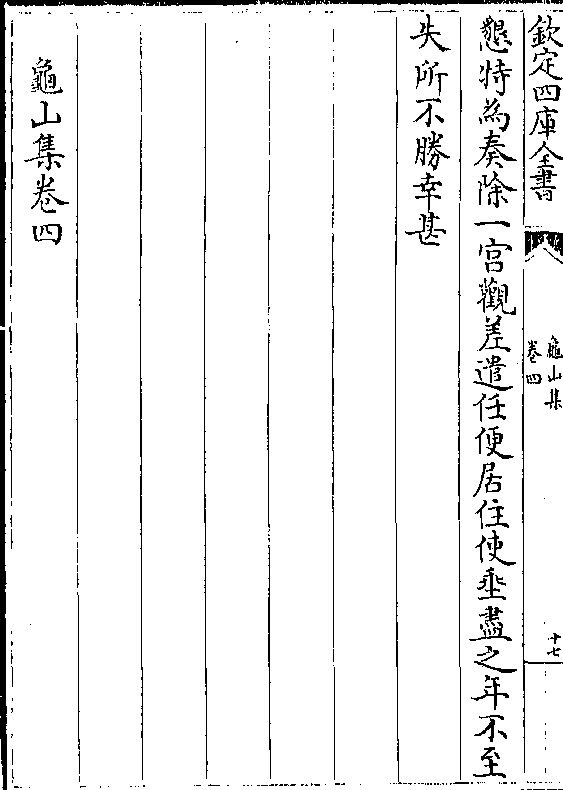 欽定四庫全書
龜山集
卷四
十七
懇特為奏除一宮觀差遣任便居住使垂盡之年不至
失所不勝幸甚
龜山集卷四